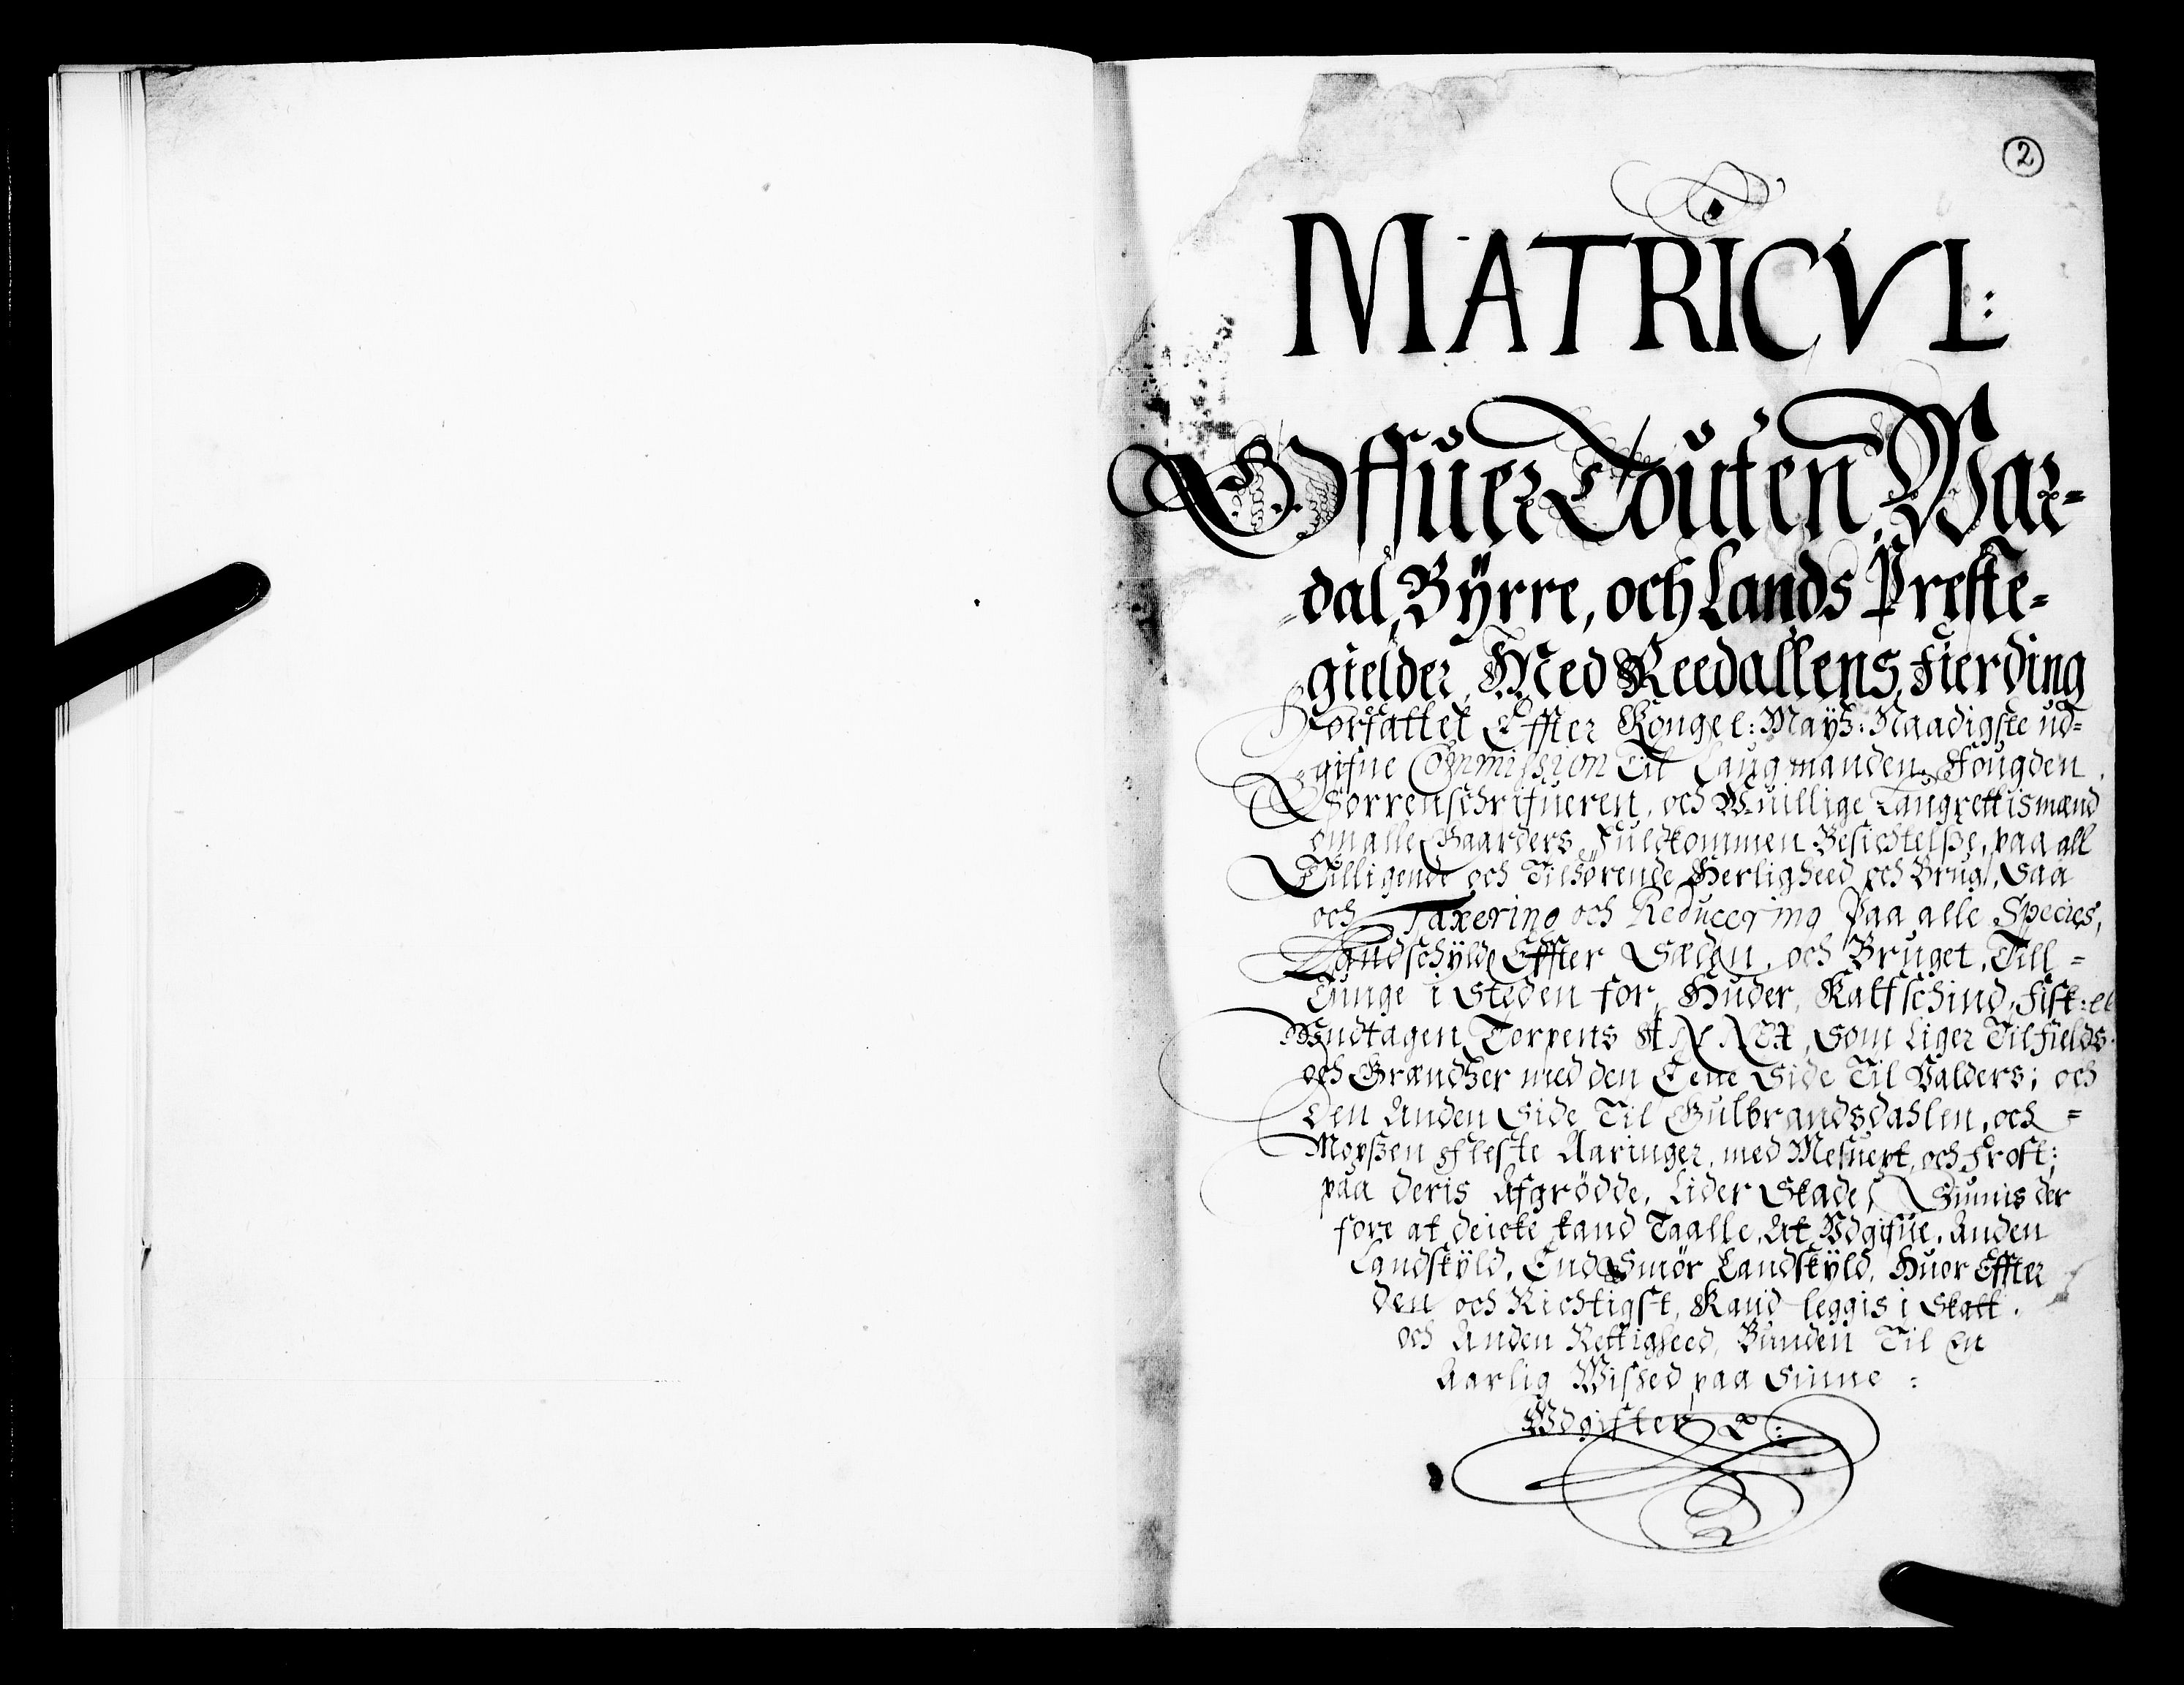 2
MATRICVL:
Offuer Touten, War-
dal, Byrre, och Lands Preste-
gielder, Med Reedallens Fierding
Forfattet Effter Kongel: Mayß: Naadigste ud-
gifne Commission Til Laugmanden, Fougden
Sorrenschrifueren, och W-uillige Laugrettismænd
om alle Gaarders Fuldkommen Besichtelße, paa all
Tilligende och Tilhørende Herligheed och Brug, Saa
och Taxering och Reducering Paa alle Species,
Landschyld Effter Sæden, och Bruget, Till-
Tunge i Steden for, Huder, Kalfschind, Fisk: et
Wndtagen Torpens ANNEX, Som Liger Til Fields
och Grændtzer med den Eene Side Til Valders; och
Den Anden Side Til Gulbrandsdahlen, och=
Morßen Fleste Aaringer, med Mesuext, och Frost;
paa deris Afgrödde, Lider Skade, Siunis der
fore at deicke kand Taalle, At Vdgifue, Anden
Landskyld, End Smör Landskyld, Huor Effter
den och Richtigst, Kand leggis i Skatt,
och Anden Rettigheed, Bunden Til En
Aarlig Wished paa Sinne:
Wdgifter &: